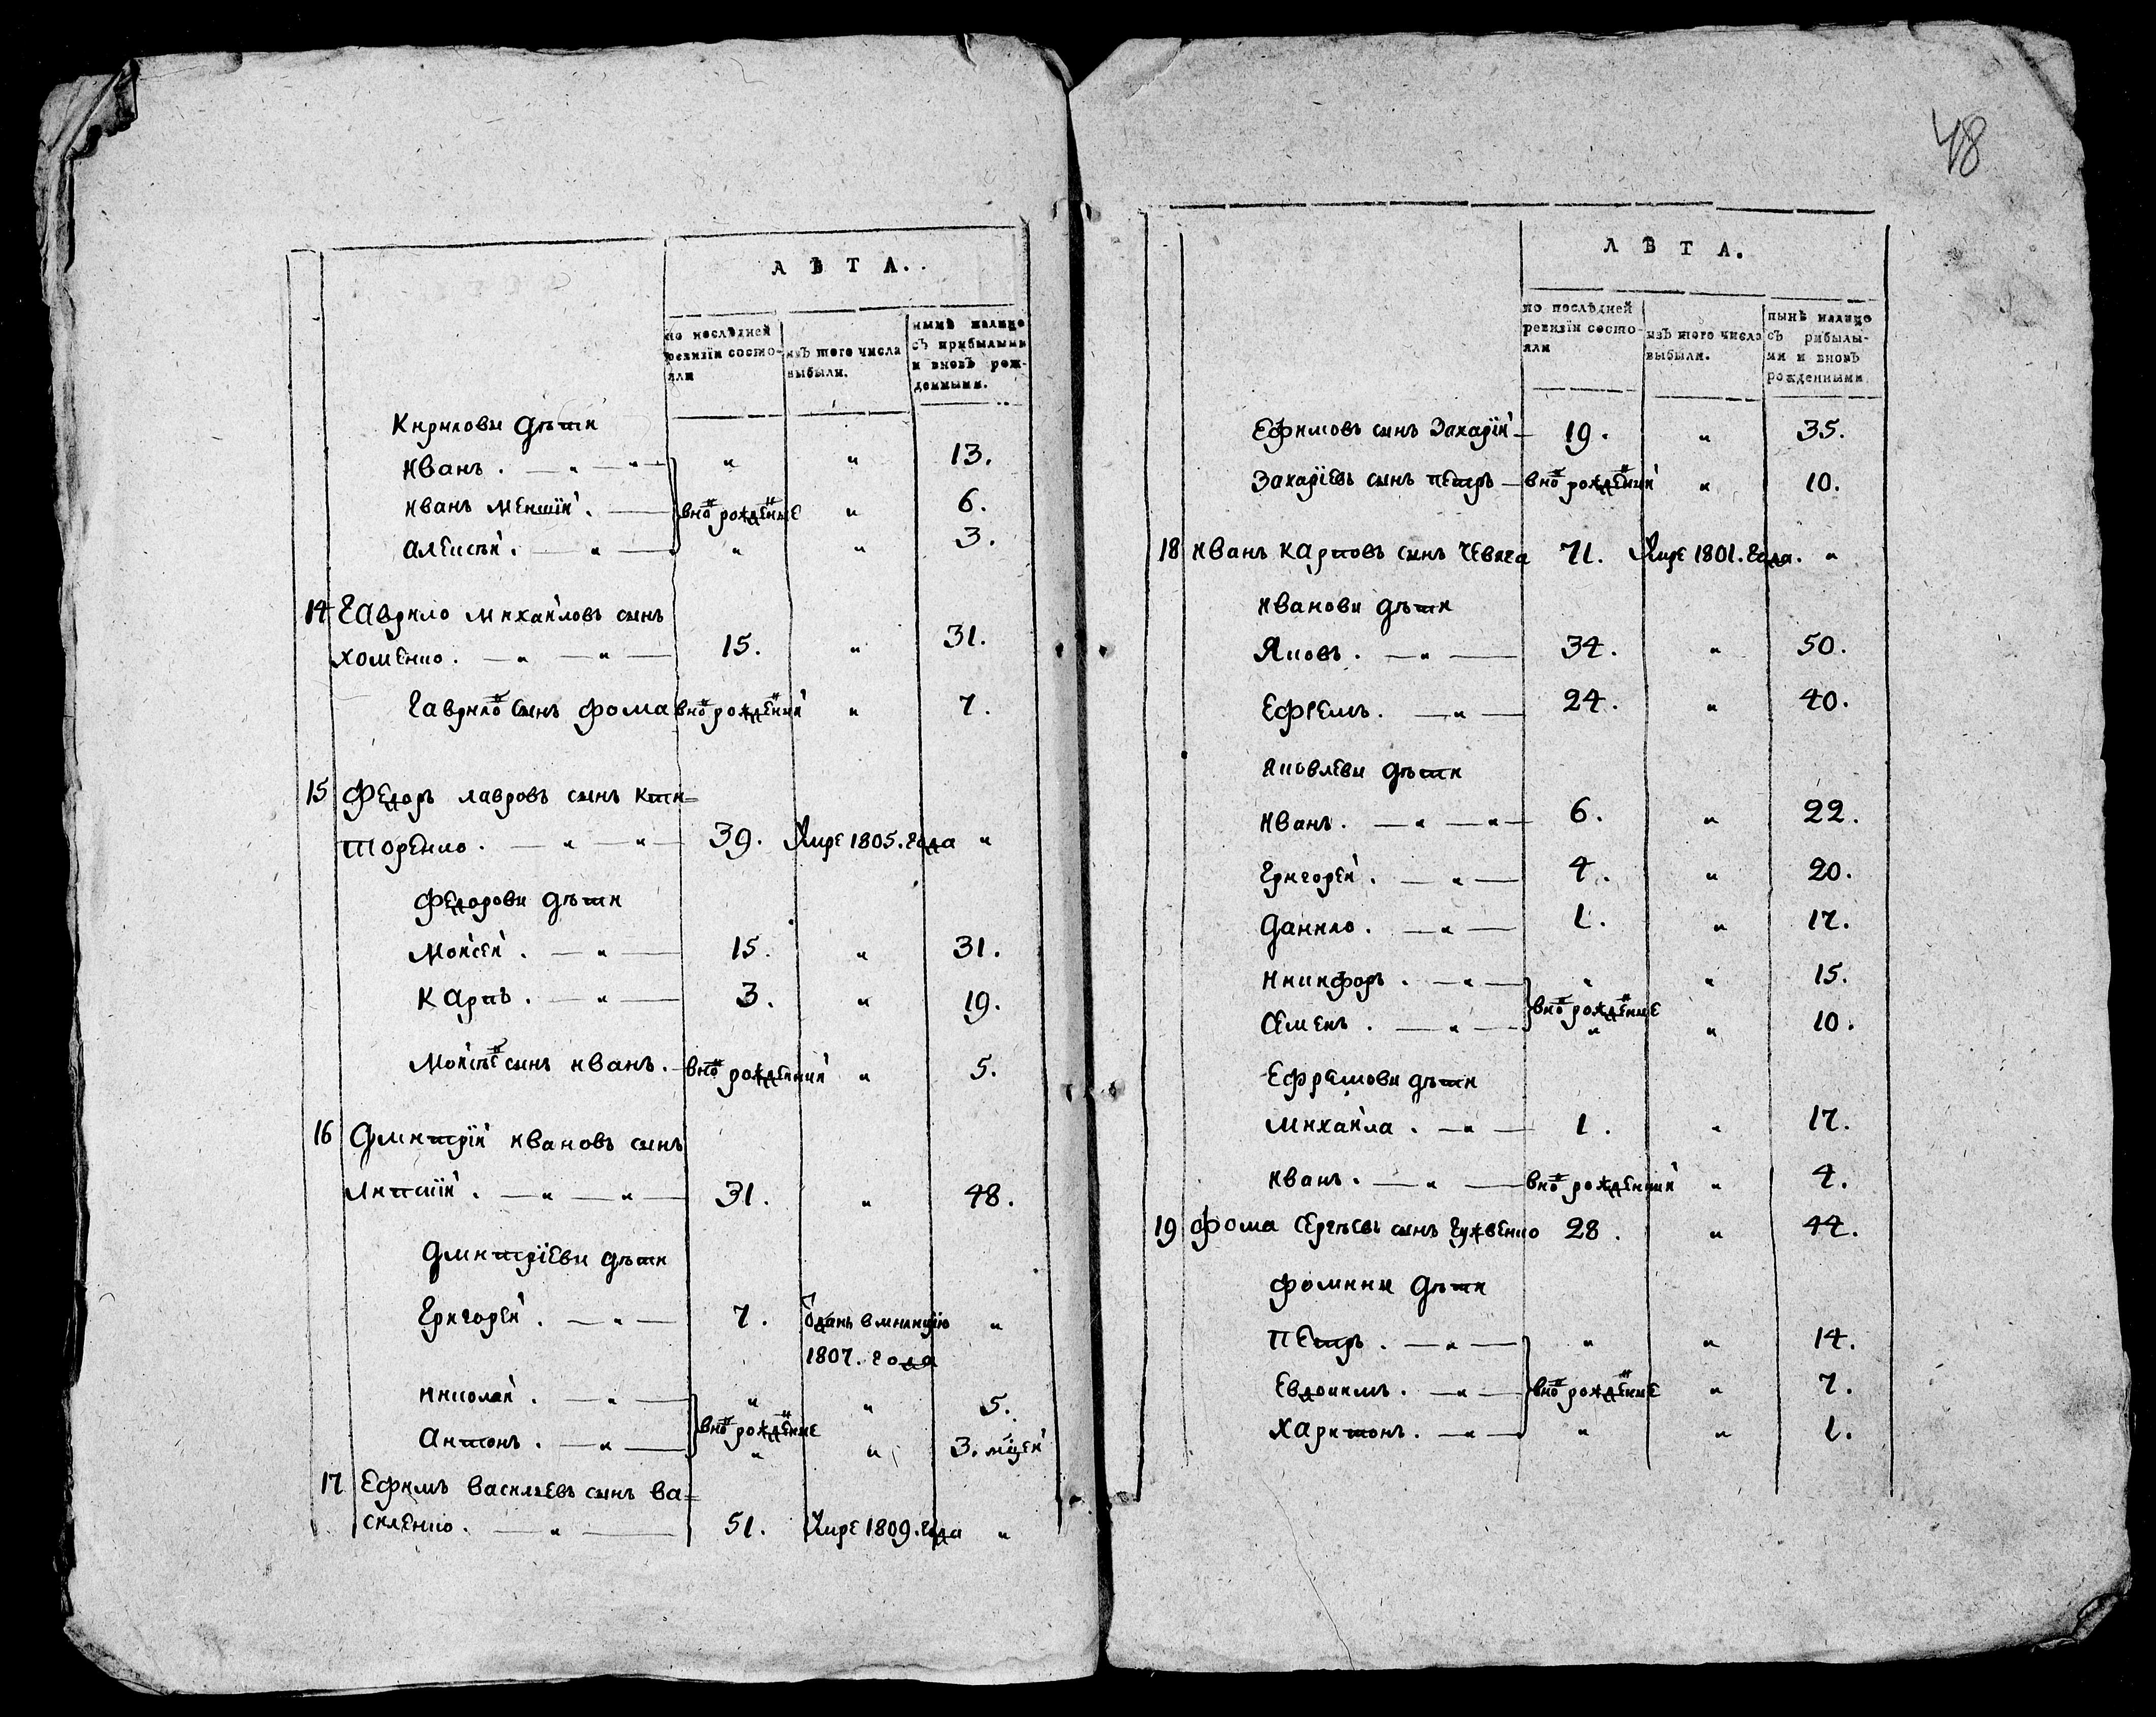 ЛѢТА.
по послѣдней ревизіи состояли
изъ того числа выбыли.
нынѣ налицо съ прибылыми и вновь рожденными.
Кирилови дѣти
Иванъ . — „ — „ — „ „ 13.
Иванъ меншій . — вно рожденые „ 6.
Алексѣй . — „ — „ „ 3.
14 Гаврило Михайловъ сынъ
Хоменко . — „ — „ — 15. „ 31.
Гаврило сынъ Фома вно рожденный „ 7.
15 Федоръ Лавровъ сынъ Кти=
торенко . — „ — „ — 39. Умре 1805. года „
Федорови дѣти
Мойсей . — „ — 15. „ 31.
Карпъ . — „ — 3. „ 19.
Мойсѣе сынъ Иванъ . вно рожденный „ 5.
16 Дмитрій Ивановъ сынъ
. — „ — „ — 31. „ 48.
Дмитріеви дѣти
Григорей . — „ — 7. Отданъ в милицію „
1807. года
Николай . — „ — „ „ 5.
вно рожденые
Антонъ . — „ — „ „ 3. мцей
17 Ефимъ Васильевъ сынъ Ва=
силенко . — „ — 51. Умре 1809. года „
48
ЛѢТА.
по послѣдней ревизіи состояли
изъ того числа выбыли.
нынѣ налицо съ рибылыми и вновь рожденными
Ефимовъ сынъ Захарій — 19. „ 35.
Захаріевъ сынъ Петръ — вно рожденый „ 10.
18 Иванъ Карповъ сынъ Чевяга 71. Умре 1801. года. „
Иванови дѣти
Яковъ . — „ — 34. „ 50.
Ефремъ . — „ — 24. „ 40.
Яковлеви дѣти
Иванъ . — „ — „ — 6. „ 22.
Григорей . — „ — 4. „ 20.
Данило . — „ — 1. „ 17.
Никифоръ . — „ — „ „ 15.
вно рожденые
Семенъ . — „ — „ „ 10.
Ефремови дѣти
Михайла . — „ — 1. „ 17.
Иванъ . — „ — вно рожденный „ 4.
19 Фома Сергѣевъ сынъ Гужвенко 28. „ 44.
Фомини дѣти
Петръ . — „ — „ „ 14.
Евдокимъ . — „ — вно рожденые „ 7.
Харитонъ . — „ — „ „ 1.